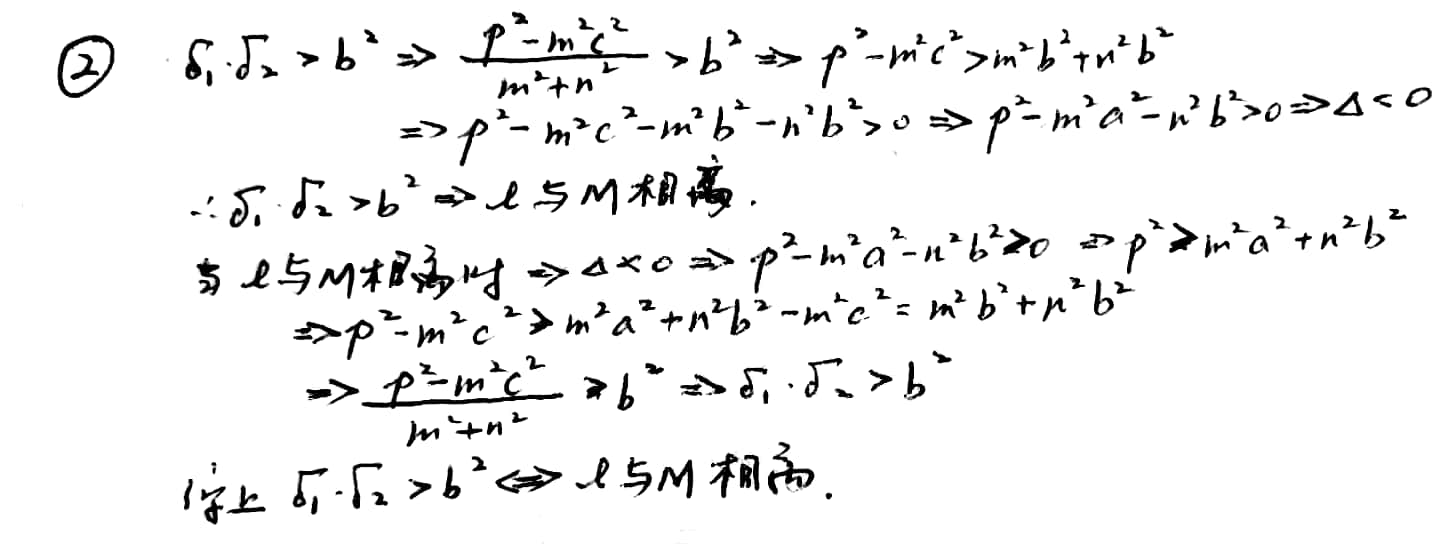 ② δ₁·δ₂ > b² ⇒ (p²-m²c²)/(m²+n²) > b² ⇒ p²-m²c² > m²b²+n²b²
⇒ p²-m²c²-m²b²-n²b² > 0 ⇒ p²-m²a²-n²b² > 0 ⇒ Δ < 0
∴ δ₁·δ₂ > b² ⇒ l与M相离.
当l与M相离时 ⇒ Δ < 0 ⇒ p²-m²a²-n²b² > 0 ⇒ p² > m²a²+n²b²
⇒ p²-m²c² > m²a²+n²b²-m²c² = m²b²+n²b²
⇒ (p²-m²c²)/(m²+n²) > b² ⇒ δ₁·δ₂ > b²
综上 δ₁·δ₂ > b² ⇔ l与M相离.